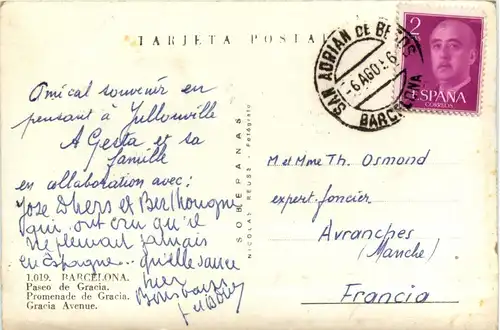 TARJETA POSTAL
SAN ADRIAN DE BESOS
-6 AGO 56
BARCELONA
2
ESPAÑA
CORREOS
Amical souvenir en
pensant à Jullouville
A Gesta et sa
famille
en collaboration avec :
José Dhers et Berthongne
qui ont cru qu'il
ne pleuvait jamais
en Espagne... qu'elle sauce
hier
Bons baisers
SOBEPANAS
NICOLAS REUSS - Fotógrafo
M et Mme Th. Osmond
expert foncier
Avranches
(Manche)
Francia
1.019. BARCELONA.
Paseo de Gracia.
Promenade de Gracia.
Gracia Avenue.